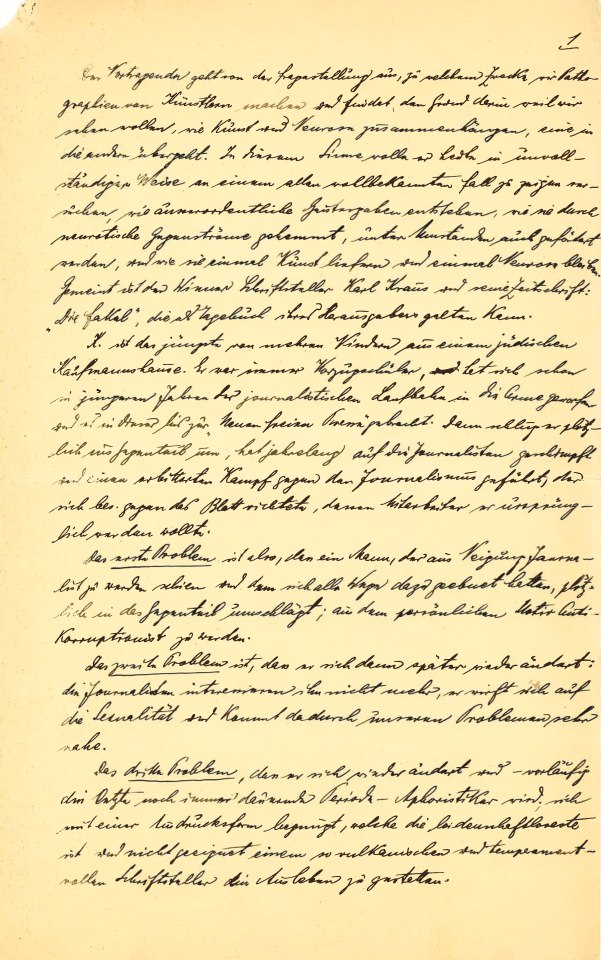 1
Der Vortragende geht von der Fragestellung aus, zu welchem Zwecke wir Patho-
graphien von Künstlern machen und findet den Grund darin, weil wir
sehen wollen, wie Kunst und Neurose zusammenhängen, eine in
die andere übergeht. In diesem Sinne wolle er heute in unvoll-
ständiger Weise an einem allen wohlbekannten Fall zu zeigen ver-
suchen, wie ausserordentliche Geistesgaben entstehen, wie sie durch
neurotische Gegenströme gehemmt, unter Umständen auch gefördert
werden, und wie sie einmal Kunst liefern und einmal Neurose bleiben.
Gemeint ist der Wiener Schriftsteller Karl Kraus und seine Zeitschrift:
"Die Fakel", die als Tagebuch ihres Herausgebers gelten kann.
K. ist das jüngste von mehren Kindern aus einem jüdischen
Kaufmannshause. Er war immer Vorzugschüler, hat sich schon
in jüngeren Jahren der journalistischen Laufbahn in die Arme geworfen
und es in dieser bis zur "Neuen freien Presse" gebracht. Dann schlug er plötz-
lich ins Gegenteil um, hat jahrelang auf die Journalisten geschimpft
und einen erbitterten Kampf gegen den Journalismus geführt, der
sich bes. gegen das Blatt richtete, dessen Mitarbeiter er ursprüng-
lich werden wollte.
Das erste Problem ist also, dass ein Mann, der aus Neigung Journa-
list zu werden schien und dem sich alle Wege dazu geebnet hatten, plötz-
lich in das Gegenteil umschlägt; aus dem persönlichen Motiv Anti-
Korruptionist zu werden.
Das zweite Problem ist, dass er sich dann später wieder ändert:
die Journalisten interessieren ihn nicht mehr, er wirft sich auf
die Sexualität und kommt dadurch unseren Problemen sehr
nahe.
Das dritte Problem, dass er sich wieder ändert und – vorläufig
die letzte noch immer dauernde Periode – Aphoristiker wird, sich
mit einer Ausdrucksform begnügt, welche die leidenschaftsloseste
ist und nicht geeignet einem so vulkanischen und temperament-
vollen Schriftsteller ein Ausleben zu gestatten.